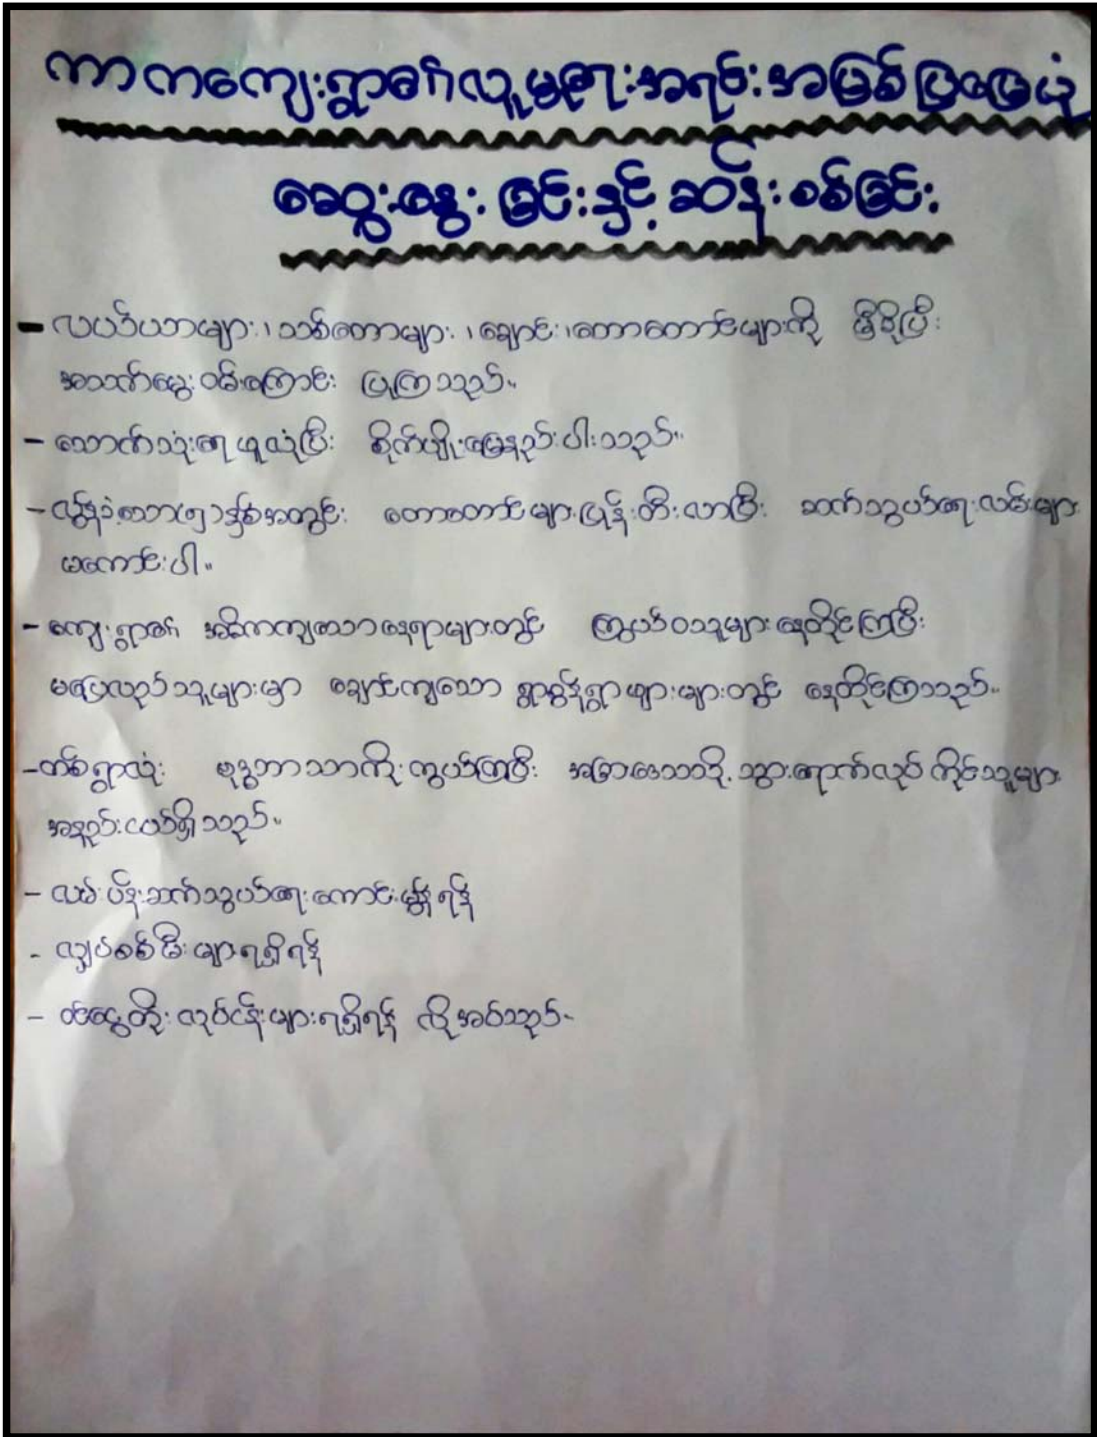 ကာကကျေးရွာ၏လူမှုရေးအရင်းအမြစ်ပြမြေပုံ
ဆွေးနွေးခြင်းနှင့်ဆန်းစစ်ခြင်း
- လယ်ယာများ၊သစ်တောများ၊ချောင်း၊တောတောင်များကို မှီခိုပြီး
အသက်မွေးဝမ်းကြောင်း ပြုကြသည်။
- သောက်သုံးရေဖူလုံပြီး စိုက်ပျိုးမြေနည်းပါးသည်။
- လွန်ခဲ့သော(၅)နှစ်အတွင်း တောတောင်များပြုန်းတီးလာပြီး ဆက်သွယ်ရေးလမ်းများ
မကောင်းပါ။
- ကျေးရွာ၏ အဓိကကျသောနေရာများတွင် ကြွယ်ဝသူများနေထိုင်ကြပြီး
မပြေလည်သူများမှာ ချောင်ကျသော ရွာစွန်ရွာဖျားများတွင် နေထိုင်ကြသည်။
- တစ်ရွာလုံး ဗုဒ္ဓဘာသာကိုးကွယ်ကြပြီး အခြားဒေသသို့သွားရောက်လုပ်ကိုင်သူများ
အနည်းငယ်ရှိသည်။
- လမ်းပန်းဆက်သွယ်ရေးကောင်းမွန်ရန်
- လျှပ်စစ်မီးများရရှိရန်
- ဝင်ငွေတိုးလုပ်ငန်းများရရှိရန် လိုအပ်သည်။